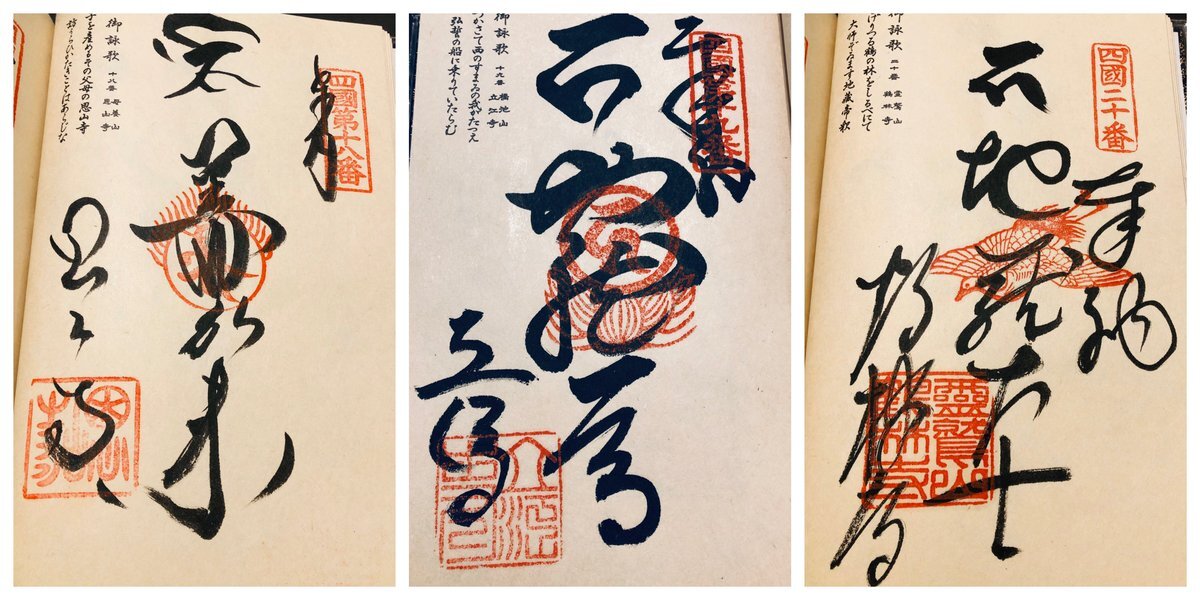 四國第十八番
奉納
薬師如来
恩山寺
御詠歌 十八番 母養山 恩山寺
子を産めるその父母の恩山寺
訪らひがたきことはあらじな
四國第十九番
奉納
地蔵尊
立江寺
御詠歌 十九番 橋池山 立江寺
つかさて西のすまゐの我がたつえ
弘誓の船に乗りていたらむ
四國二十番
奉納
地蔵大士
鶴林寺
御詠歌 二十番 霊鷲山 鶴林寺
げりつる鶴の林をしるべにて
大師ぞゐます地蔵帝釈